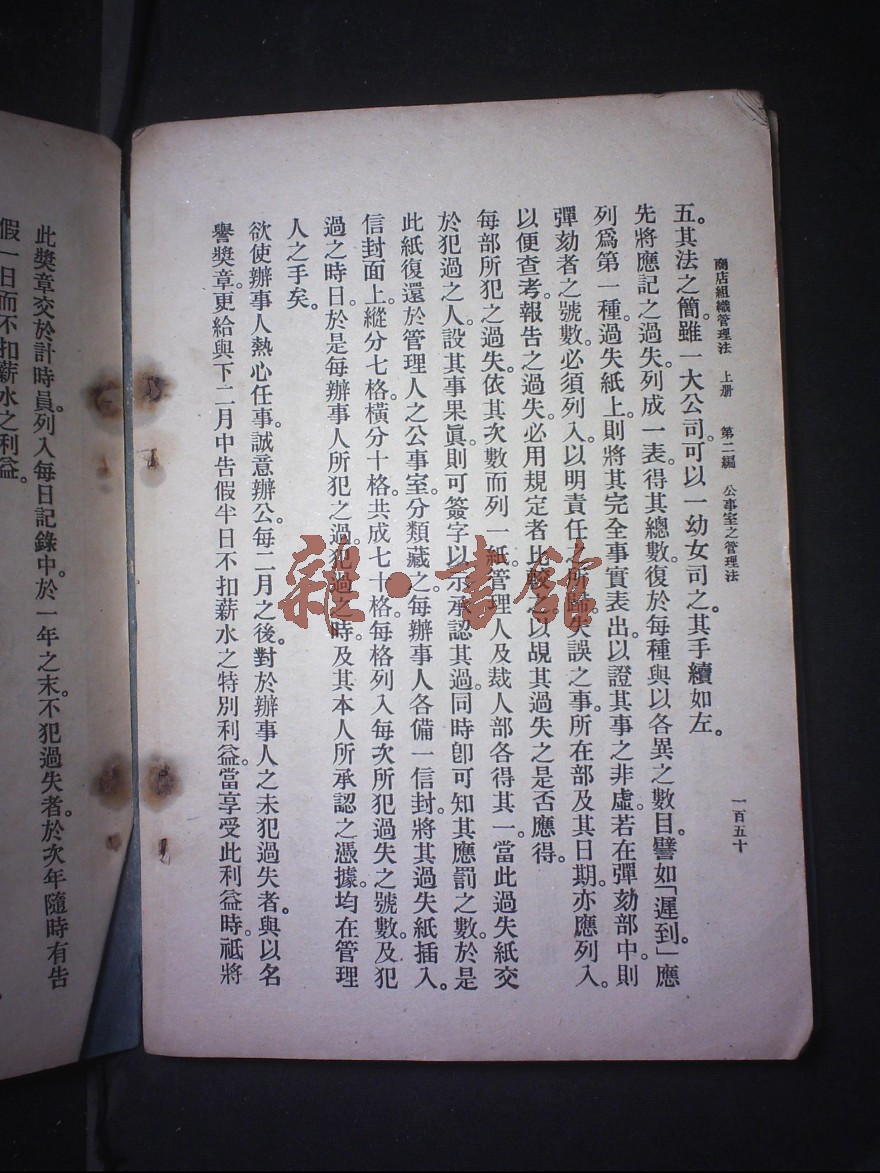 商店組織管理法　上册　第二編　公事室之管理法
一百五十
五。其法之簡。雖一大公司。可以一幼女司之。其手續如左。
先將應記之過失。列成一表。得其總數。復於每種與以各異之數目。譬如「遲到」應
列爲第一種。過失紙上。則將其完全事實表出。以證其事之非虛。若在彈劾部中。則
彈劾者之號數。必須列入。以明責任之所歸。失誤之事。所在部及其日期。亦應列入。
以便查考。報告之過失。必用規定者比較之。以覘其過失之是否應得。
每部所犯之過失。依其次數而列一紙。管理人及裁人部各得其一。當此過失紙交
於犯過之人。設其事果眞。則可簽字以示承認其過。同時卽可知其應罰之數。於是
此紙復還於管理人之公事室。分類藏之。每辦事人各備一信封。將其過失紙插入。
信封面上。縱分七格。橫分十格。共成七十格。每格列入每次所犯過失之號數。及犯
過之時日。於是每辦事人所犯之過。犯過之時。及其本人所承認之憑據。均在管理
人之手矣。
欲使辦事人熱心任事。誠意辦公。每二月之後。對於辦事人之未犯過失者。與以名
譽獎章。更給與下二月中告假半日不扣薪水之特別利益。當享受此利益時。祗將
此獎章交於計時員。列入每日記錄中。於一年之末。不犯過失者。於次年隨時有告
假一日而不扣薪水之利益。
雜·書館